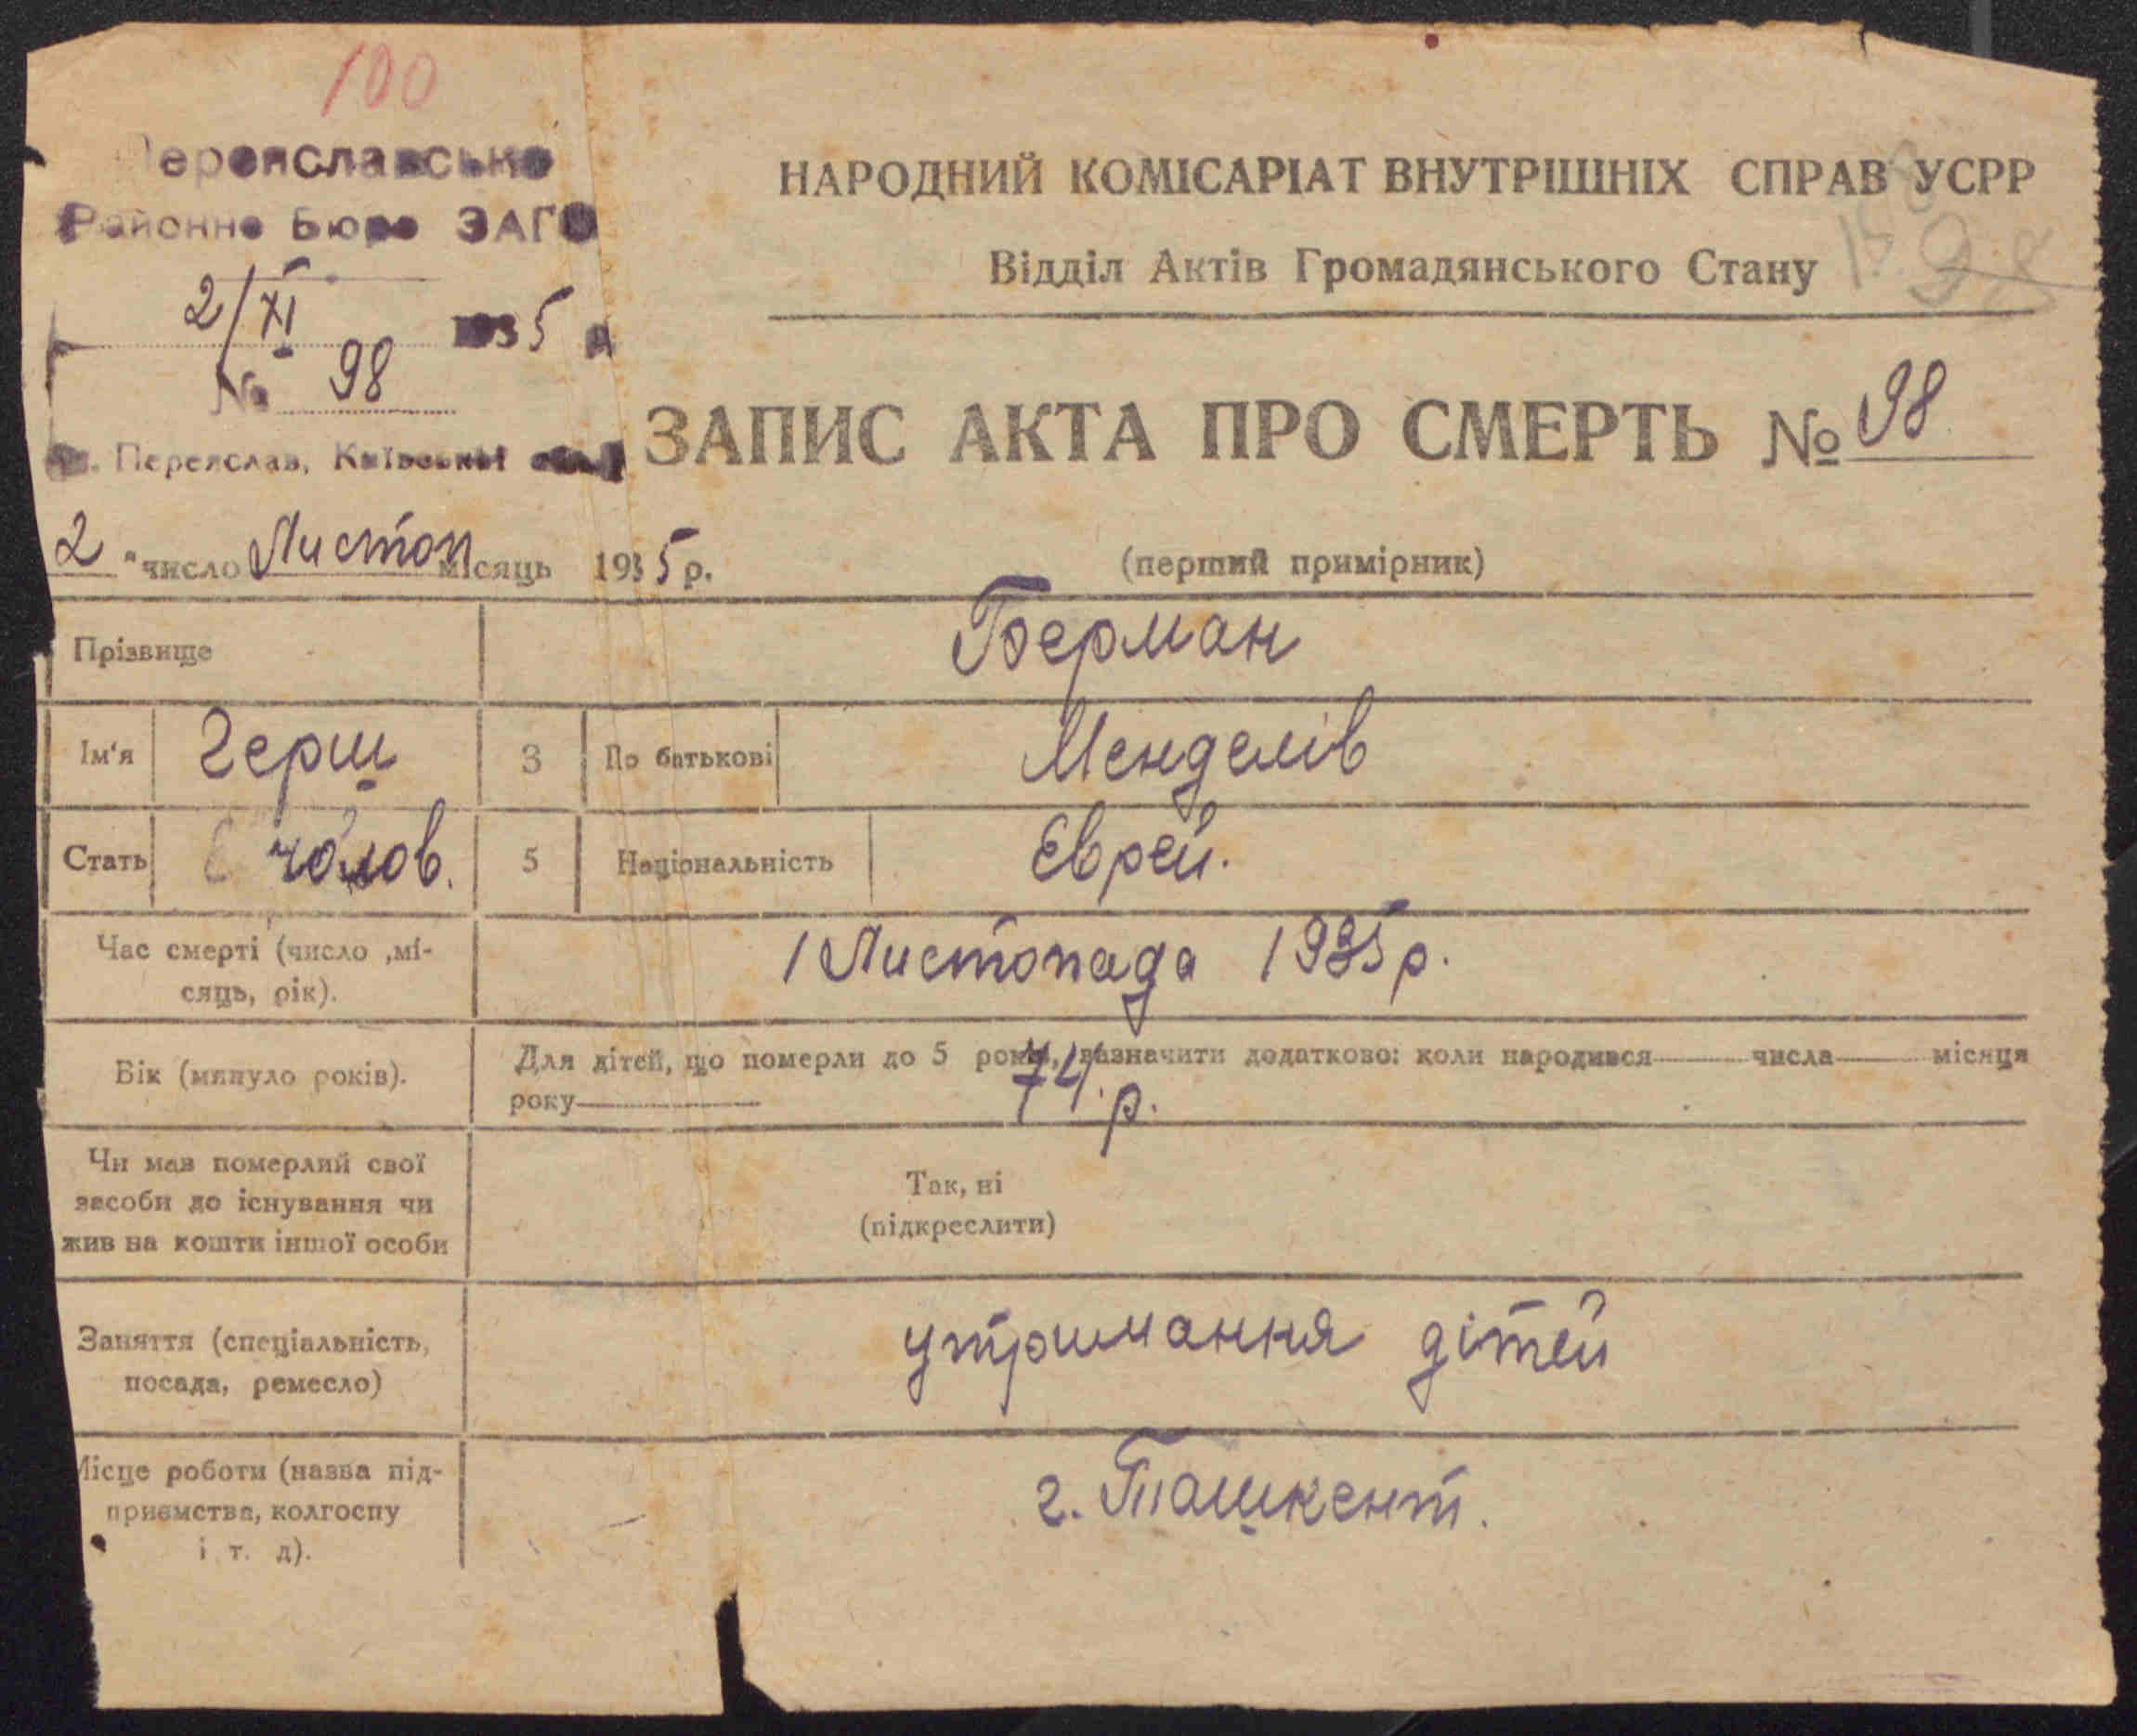 100
Переяславське
Районне Бюро ЗАГС
2/XI 1935 р
№ 98
м. Переяслав, Київської обл.
НАРОДНИЙ КОМІСАРІАТ ВНУТРІШНІХ СПРАВ УСРР
Відділ Актів Громадянського Стану
98
ЗАПИС АКТА ПРО СМЕРТЬ № 98
2 " число Листоп місяць 1935 р.
(перший примірник)
Прізвище Берман
Ім'я Герш 3 По батькові Менделів
Стать чолов. 5 Національність Єврей.
Час смерті (число ,мі-
сяць, рік).
1 Листопада 1935 р.
Вік (минуло років).
Для дітей, що померли до 5 років, зазначити додатково: коли народився числа місяця
року 74. р.
Чи мав померлий свої
засоби до існування чи
жив на кошти іншої особи
Так, ні
(підкреслити)
Заняття (спеціальність,
посада, ремесло)
утримання дітей
Місце роботи (назва під-
приємства, колгоспу
і т. д).
г. Ташкент.